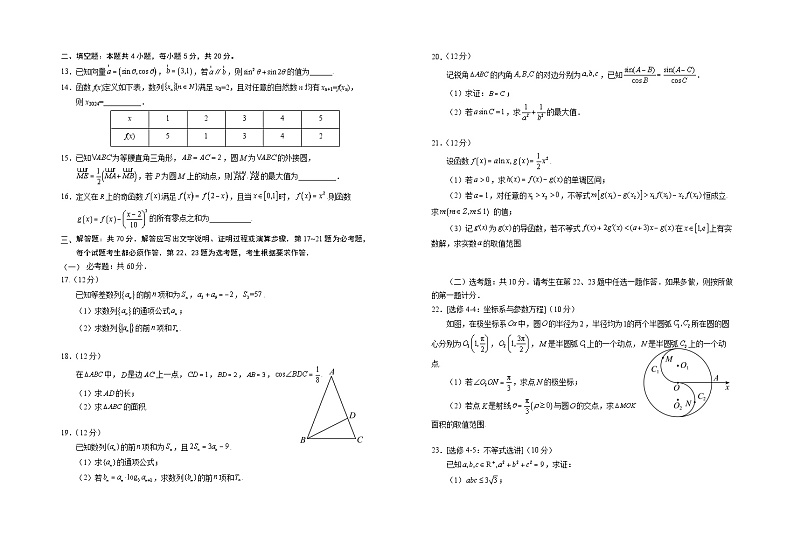 二、填空题：本题共 4 小题，每小题 5 分，共 20 分。
13. 已知向量 a=(sinθ,cosθ)，b=(3,1)，若 a∥b，则 sin²θ+sin2θ 的值为______.
14. 函数 f(x)定义如下表，数列{xₙ}(n∈N)满足 x₀=2，且对任意的自然数 n 均有 xₙ₊₁=f(xₙ)，
则 x₂₀₂₄=__________.
x 1 2 3 4 5
f(x) 5 1 3 4 2
15. 已知VABC为等腰直角三角形，AB=AC=2，圆M为VABC的外接圆，
ME=1/2(MA+MB)，若P为圆M上的动点，则 的最大值为__________.
16. 定义在R上的奇函数f(x)满足f(x)=f(2-x)，且当x∈[0,1]时，f(x)=x³.则函数
g(x)=f(x)-((x-2)/10)³的所有零点之和为__________.
三、解答题：共 70 分。解答应写出文字说明、证明过程或演算步骤。第 17~21 题为必考题，
每个试题考生都必须作答。第 22、23 题为选考题，考生根据要求作答.
（一）必考题：共 60 分.
17.(12分)
已知等差数列{aₙ}的前n项和为Sₙ， =57.
（1）求数列{aₙ}的通项公式aₙ；
（2）求数列{|aₙ|}的前n项和Tₙ.
18.(12分)
在△ABC中，D是边AC上一点，CD=1，BD=2，AB=3，cos∠BDC=1/8.
（1）求AD的长；
（2）求△ABC的面积
A
D
B
C
19.(12分)
已知数列{aₙ}的前n项和为Sₙ，且2Sₙ=3aₙ-9.
（1）求{aₙ}的通项公式；
（2）若bₙ=aₙ·log₃aₙ₊₁，求数列{bₙ}的前n项和Tₙ.
20.(12分)
记锐角△ABC的内角A,B,C的对边分别为a,b,c，已知sin(A-B)/cosB=sin(A-C)/cosC.
（1）求证：B=C；
（2）若asinC=1，求1/a²+1/b²的最大值.
21.(12分)
设函数f(x)=alnx,g(x)=1/2x².
（1）若a>0，求h(x)=f(x)-g(x)的单调区间；
（2）若a=1，对任意的x₁>x₂>0，不等式m[g(x₁)-g(x₂)]>x₁f(x₁)-x₂f(x₂)恒成立.
求m(m∈Z,m≤1)的值；
（3）记g'(x)为g(x)的导函数，若不等式f(x)+2g'(x)<(a+3)x-g(x)在x∈[1,e]上有实
数解，求实数a的取值范围.
（二）选考题：共 10 分．请考生在第 22、23 题中任选一题作答．如果多做，则按所做
的第一题计分.
22.[选修 4-4：坐标系与参数方程](10分)
如图，在极坐标系Ox中，圆O的半径为2，半径均为1的两个半圆弧C₁,C₂所在圆的圆
心分别为O₁(1,π/2)，O₂(1,3π/2)，M是半圆弧C₁上的一个动点，N是半圆弧C₂上的一个动
点.
（1）若∠O₂ON=π/3，求点N的极坐标；
（2）若点K是射线θ=π/3(ρ≥0)与圆O的交点，求△MOK
面积的取值范围.
M
C₁
O₁
A
O
x
O₂
N
C₂
23.[选修 4-5：不等式选讲](10分)
已知a,b,c∈R⁺,a²+b²+c²=9，求证：
（1）abc≤3√3；